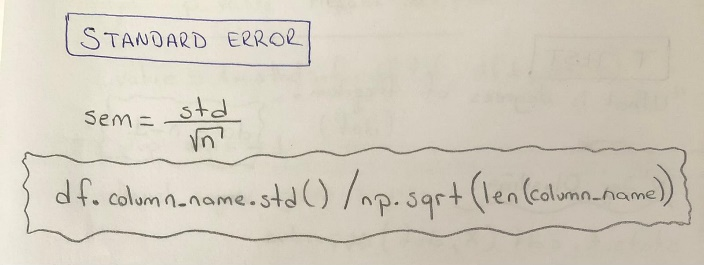 STANDARD ERROR
sem = std / √n
df.column_name.std() / np.sqrt(len(column_name))